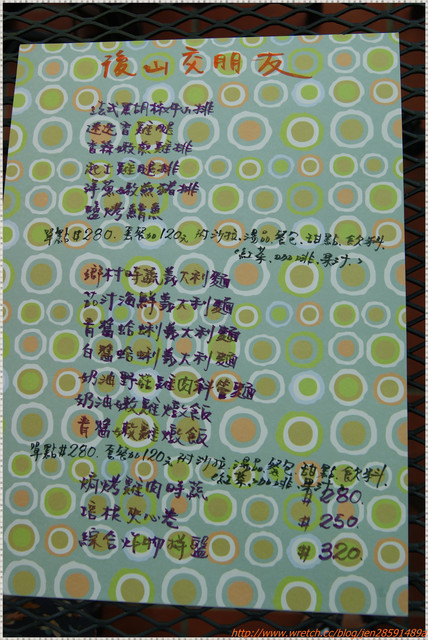 後山交朋友
法式黑胡椒牛小排
迷迭香雞腿
香蒜嫩煎雞排
起士雞腿排
洋蔥嫩煎豬排
鹽烤鯖魚
單點#280. 套餐加120元 附沙拉.湯品.餐包.甜點.飲料.
(紅茶.咖啡.果汁.)
鄉村時蔬義大利麵
茄汁海鮮義大利麵
青醬蛤蜊義大利麵
白醬蛤蜊義大利麵
奶油野菇雞肉斜管麵
奶油嫩雞燉飯
青醬嫩雞燉飯
單點#280. 套餐加120元 附沙拉.湯品.餐包.甜點.飲料.
紅茶.咖啡.果汁
焗烤雞肉時蔬 #280
培根夾心卷 #250
綜合炸物拼盤 #320
http://www.wretch.cc/blog/jen28591489